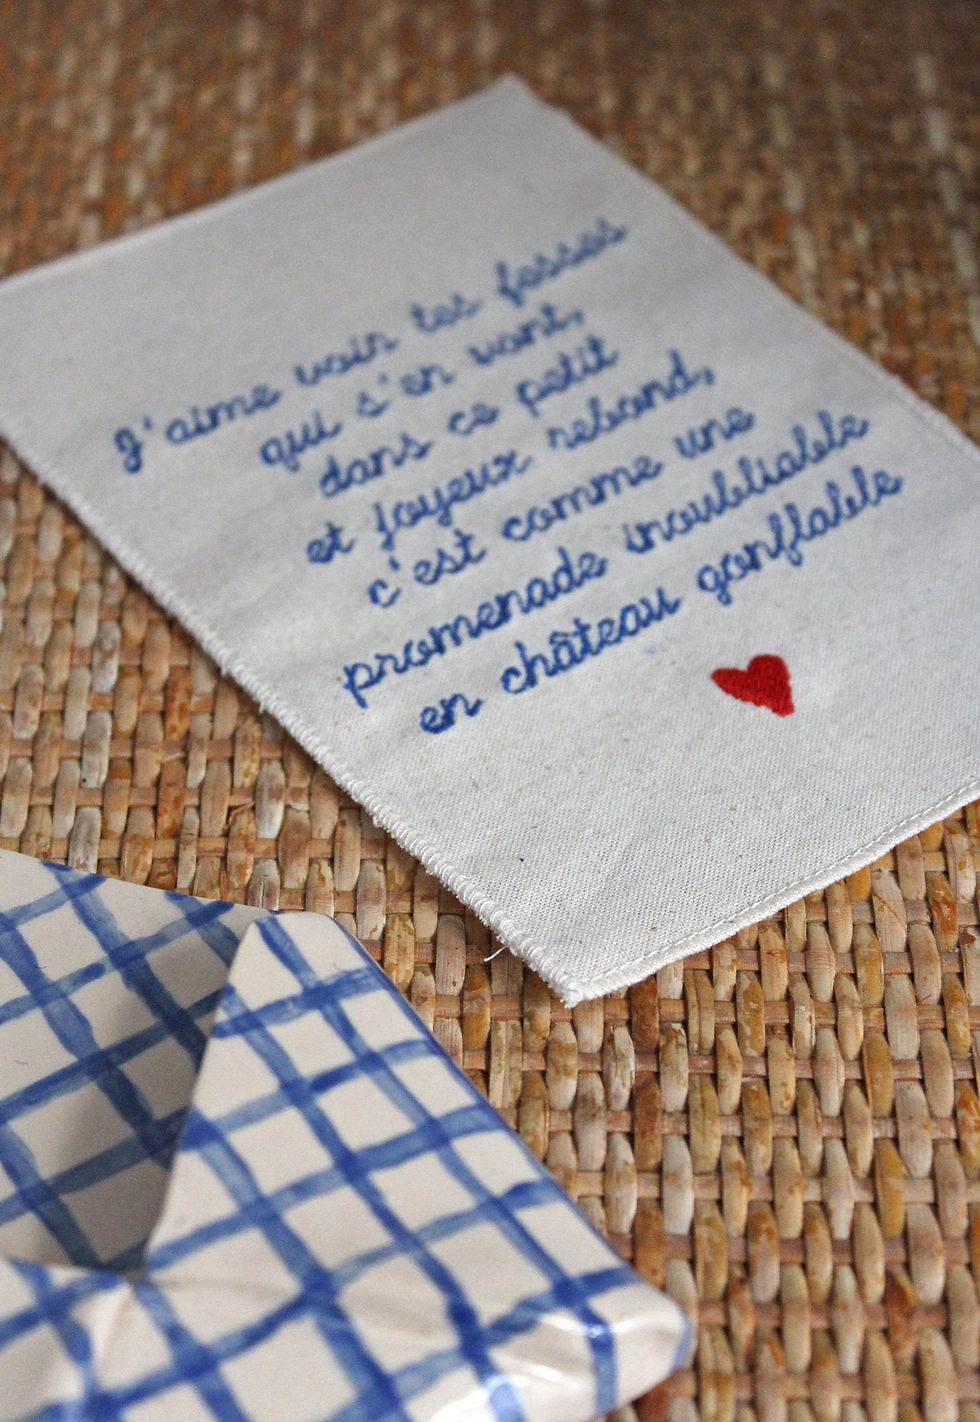 J'aime voir tes fesses
qui s'en vont,
dans ce petit
et joyeux rebond,
c'est comme une
promenade inoubliable
en château gonflable